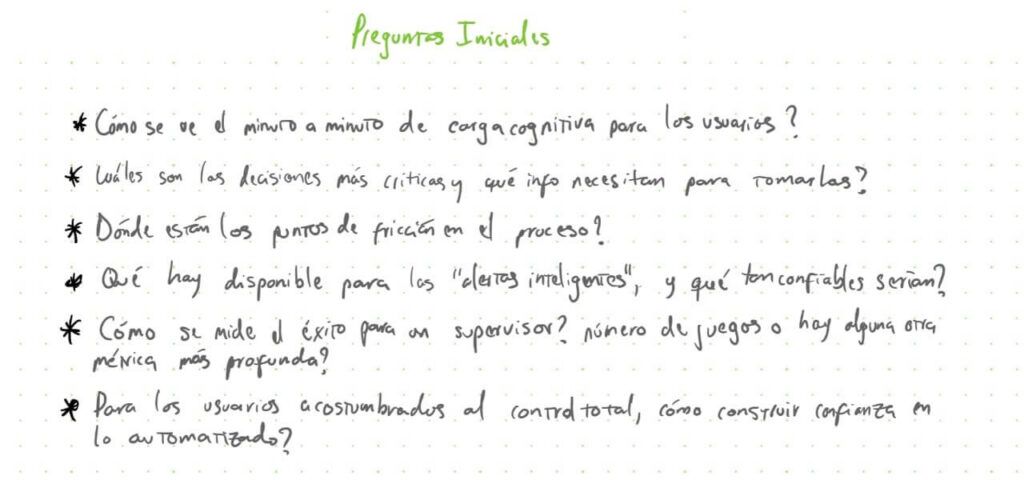 Preguntas Iniciales
* Cómo se ve el minuto a minuto de carga cognitiva para los usuarios?
* Cuáles son las decisiones más críticas y qué info necesitan para tomarlas?
* Dónde están los puntos de fricción en el proceso?
* Qué hay disponible para las "alertas inteligentes", y qué tan confiables serían?
* Cómo se mide el éxito para un supervisor? número de juegos o hay alguna otra
métrica más profunda?
* Para los usuarios acostumbrados al control total, cómo construir confianza en
lo automatizado?